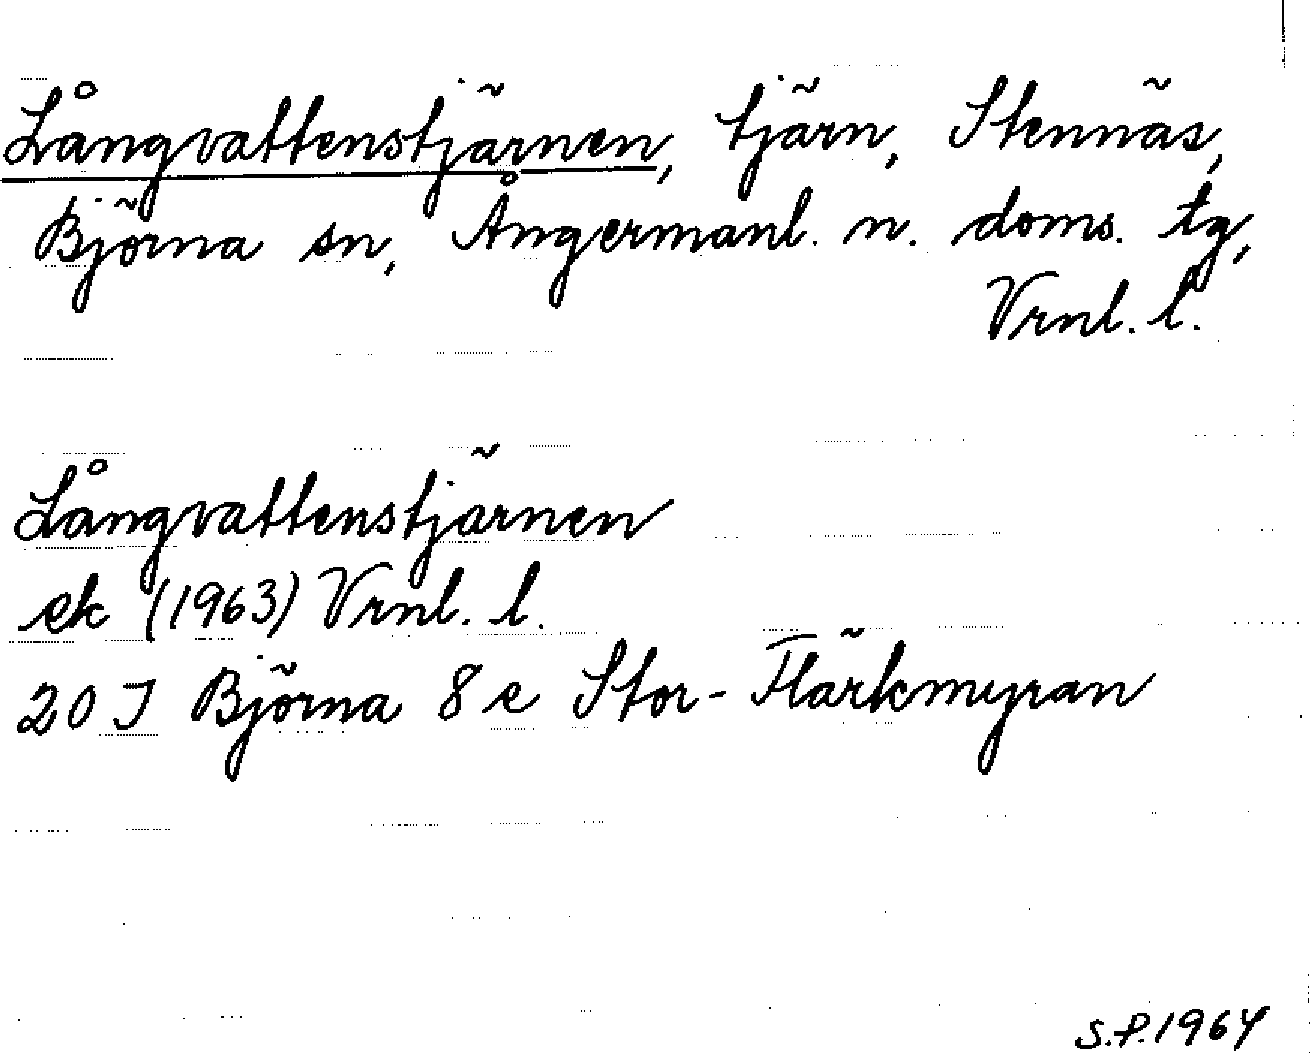 Långvattenstjärnen, tjärn, Stennäs,
Björna sn, Ångermanl. n. doms. tg,
Vrnl. l.
Långvattenstjärnen
ek (1963) Vrnl. l.
20 J Björna 8 e Stor-Flärkmyran
S.P. 1964